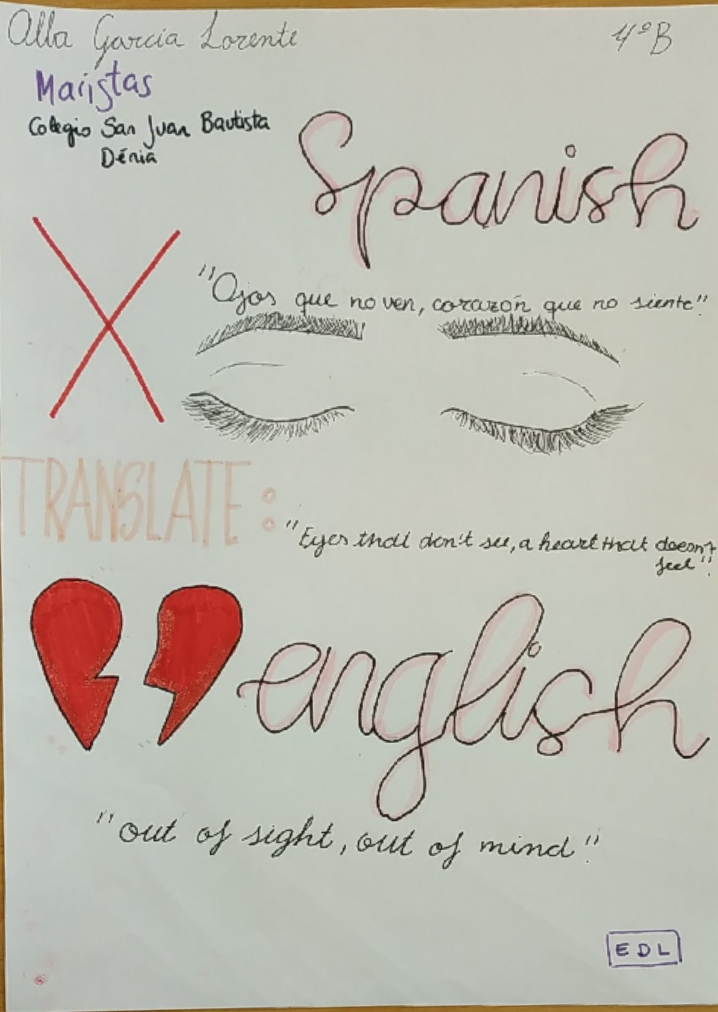 Alba García Lorente
4ºB
Maristas
Colegio San Juan Bautista
Dénia
Spanish
"Ojos que no ven, corazón que no siente"
TRANSLATE:
"Eyes that don't see, a heart that doesn't
feel".
english
"out of sight, out of mind"
EDL